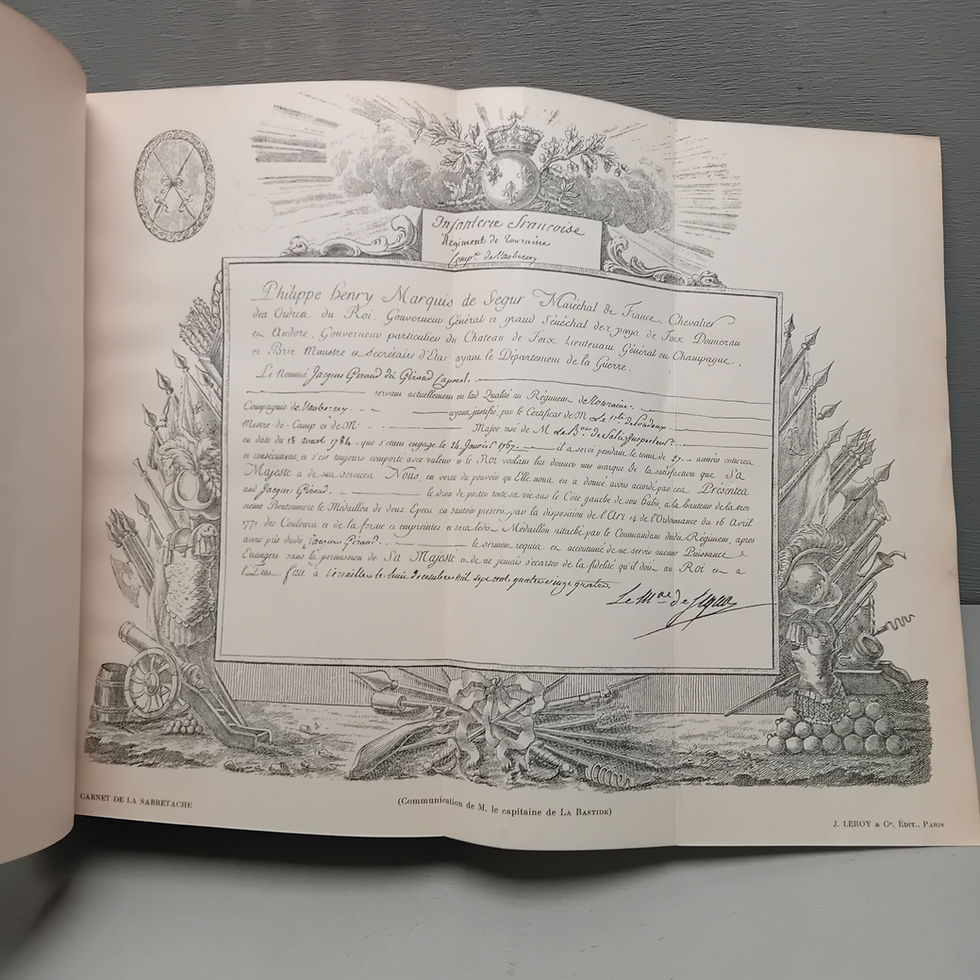 Infanterie françoise
Régiment de Touraine
Comp.e de Vaubercey
Philippe henry Marquis de Segur Maréchal de France, Chevalier
des Ordres du Roi, Gouverneur Général et grand Sénéchal des pays de Foix Donnezan
et Andore, Gouverneur particulier du Chateau de Foix Lieutenant Général en Champagne,
et Brie Ministre et Secrétaire d'Etat ayant le Département de la Guerre.
Le Nommé Jacques Giraud dit Giraud Caporal.
servant actuellement en lad Qualité au Régiment de Touraine.
Compagnie de Vaubercey ayant justifié, par le Certificat de M. Le
Mestre-de-Camp et de M. Major, visé de M. Le B.on de Salis Inspecteur
en date du 18 aoust 1784. que s'étant engagé le 14 Janvier 1767. il a servi pendant le tems de années entieres
et consécutives, et s'est toujours comporté avec valeur et le Roi voulant lui donner une marque de la satisfaction que Sa
Majesté a de ses services Nous, en vertu du pouvoir qu'Elle nous en a donné avons accordé par ces Présentes
aud Jacques Giraud. le droit de porter toute sa vie sur le Côté gauche de son habit, à la hauteur de la troi
sieme Boutonniere le Médaillon de deux Epées en sautoir prescrit par la disposition de l'Art 14 de l'Ordonnance du 16 Avril
1771 des Couleurs et de la forme ci empreintes et sera ledit Médaillon attaché par le Commandant dudit Régiment, après
avoir pris dudit Jacques Giraud. le serment requis et accoutumé de ne servir aucune Puissance
Etrangere sans la permission de Sa Majesté et de ne jamais s'écarter de la fidélité qu'il doit au Roi et a
l'Etat. fait à Versailles le decembre mil sept cent quatre vingt quatre.
Le M.al de Segur
CARNET DE LA SABRETACHE
(Communication de M. le capitaine de LA BASTIDE)
J. LEROY & Cie, ÉDIT., PARIS